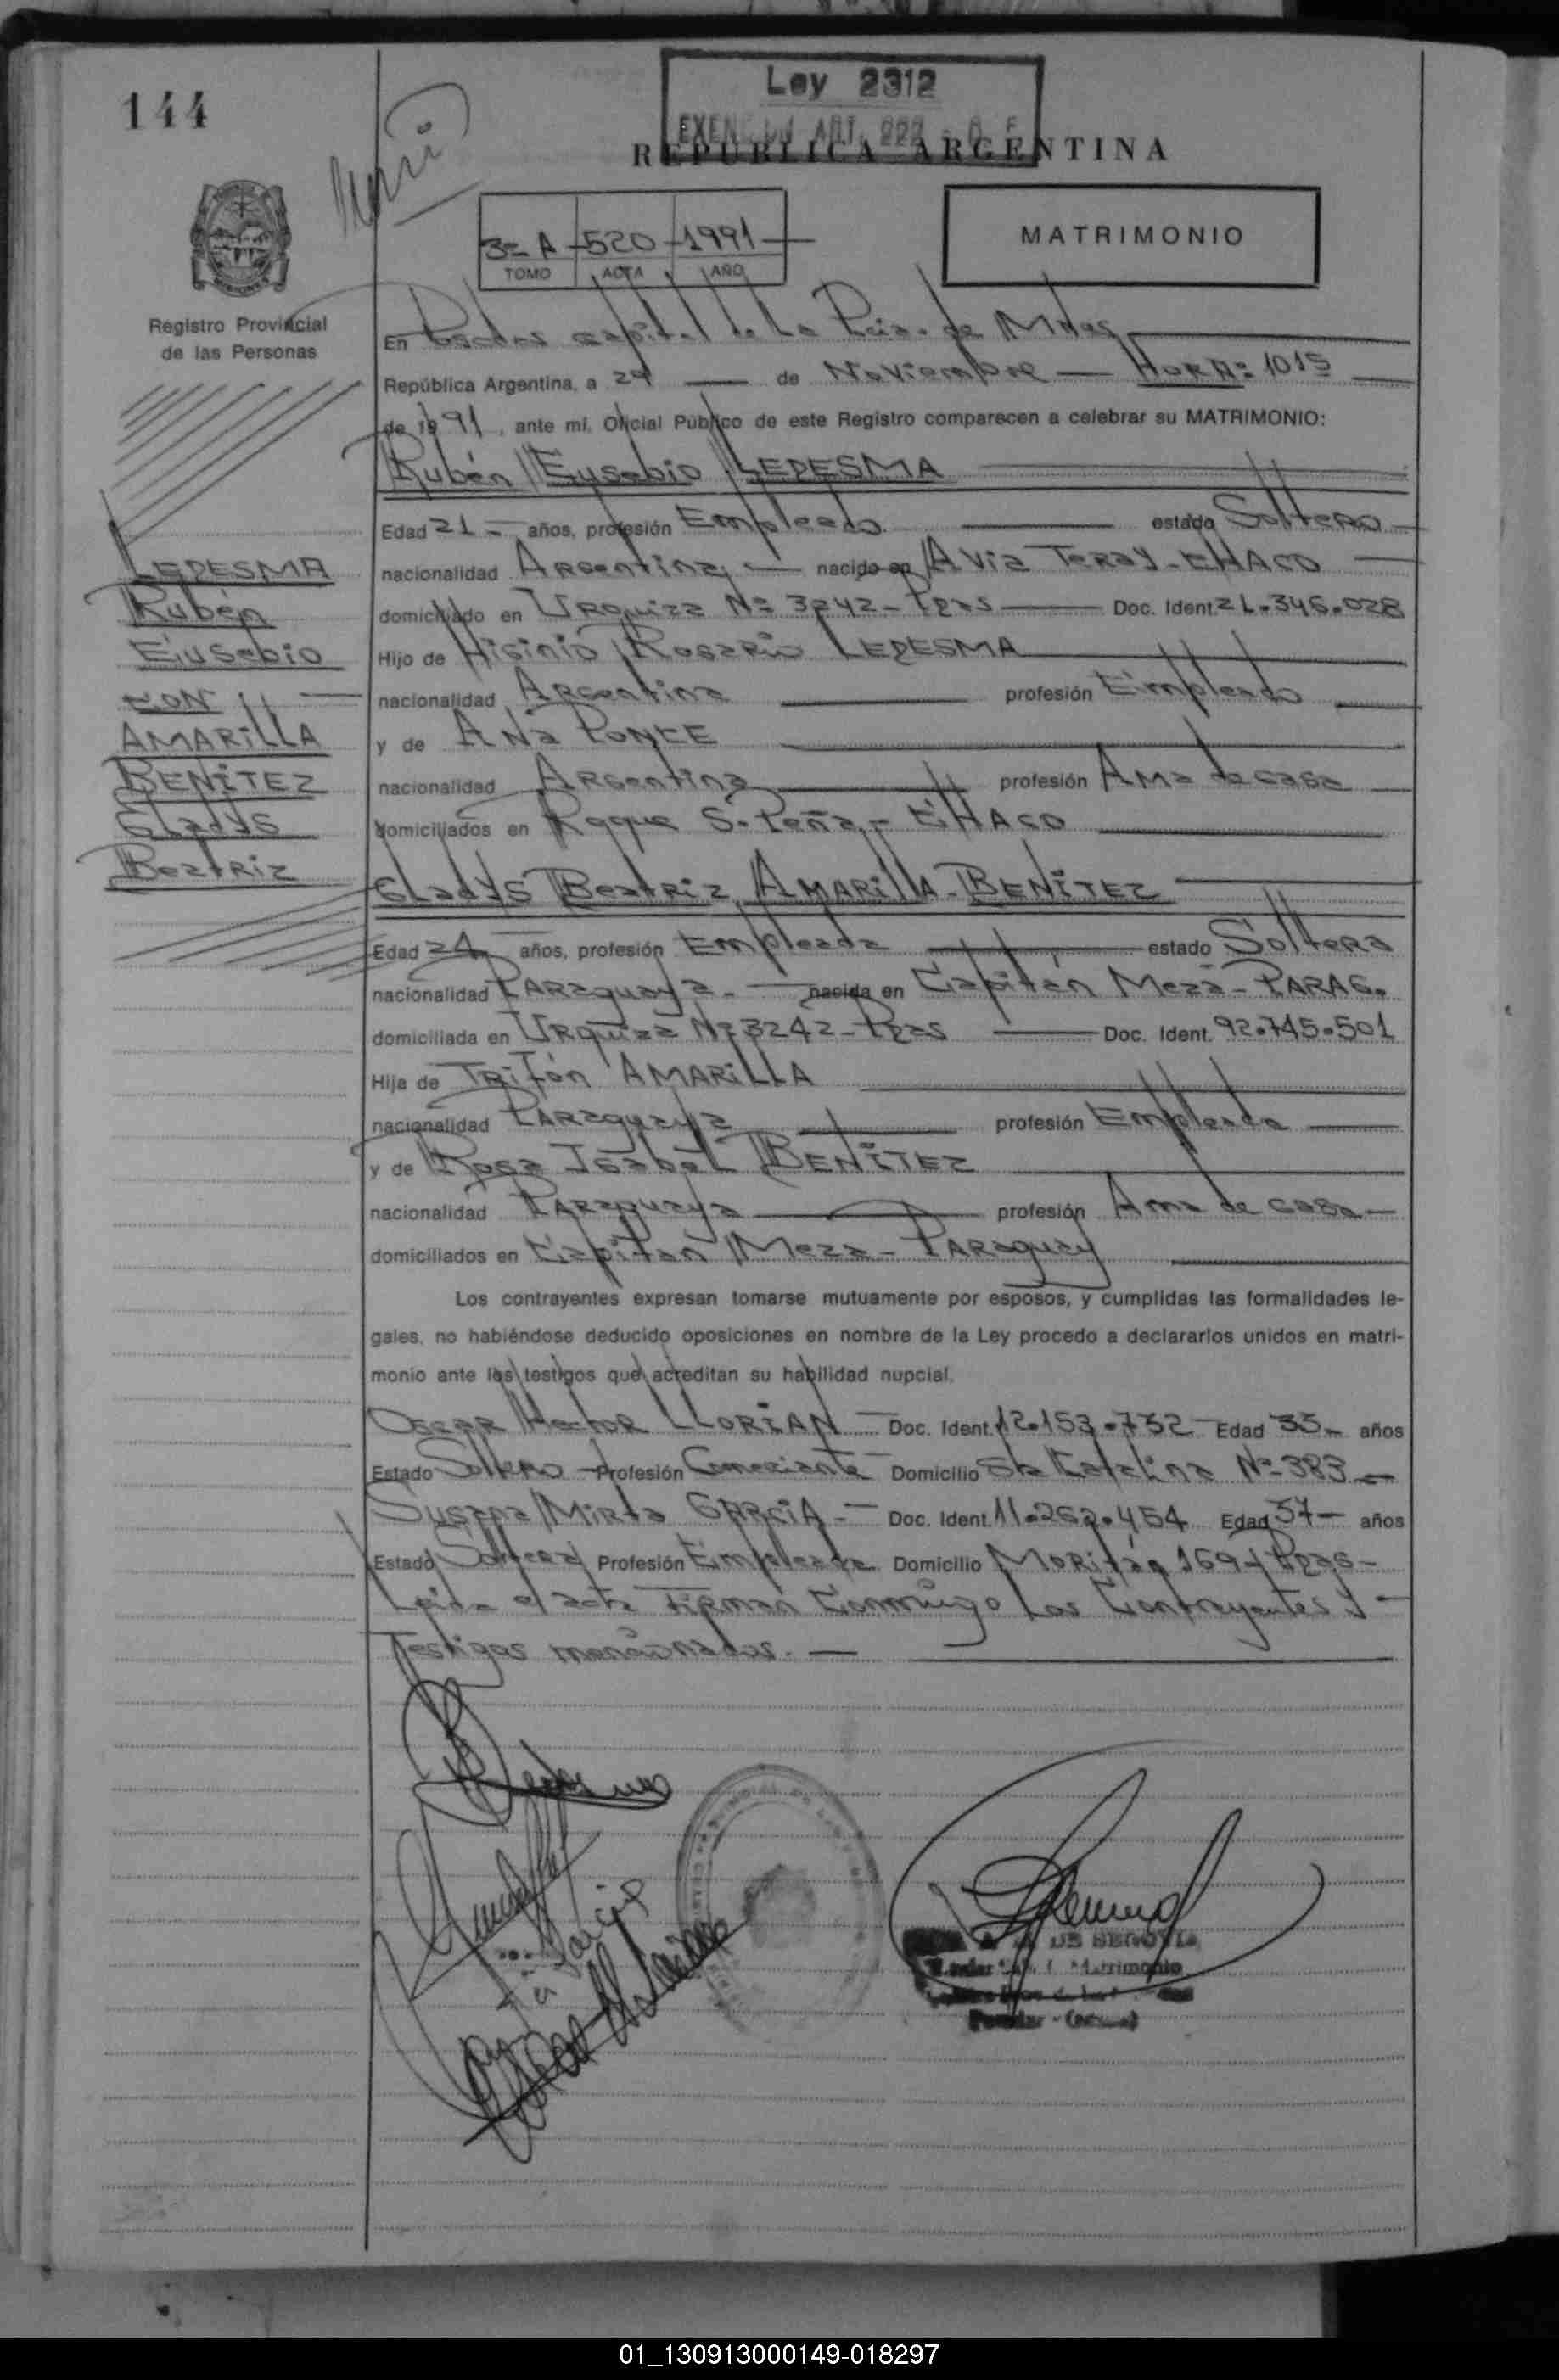 144
Ley 2312
REPUBLICA ARGENTINA
3= A - 520 - 1991
TOMO ACTA AÑO
MATRIMONIO
Registro Provincial
de las Personas
En Posadas capital de La Pcia. de Mnes
República Argentina, a 29 de Noviembre HORA: 1015
de 1991, ante mí, Oficial Público de este Registro comparecen a celebrar su MATRIMONIO:
Rubén Eusebio LEDESMA
Edad 21 - años, profesión Empleado estado Soltero
nacionalidad Argentina nacido en Avia Teray - CHACO
domiciliado en Urquiza Nº 3242 - Pdas Doc. Ident. 21.346.028
Hijo de Higinio Rosario LEDESMA
nacionalidad Argentina profesión Empleado
y de Ana PONCE
nacionalidad Argentina profesión Ama de casa
domiciliados en Roque S. Peña - CHACO
LEDESMA
Rubén
Eusebio
CON
AMARILLA
BENÍTEZ
Gladys
Beatriz
Gladys Beatriz AMARILLA - BENÍTEZ
Edad 24 años, profesión Empleada estado Soltera
nacionalidad Paraguaya - nacida en Capitán Meza - PARAG.
domiciliada en Urquiza Nº 3242 - Pdas Doc. Ident. 92.745.501
Hija de Trifón AMARILLA
nacionalidad Paraguaya profesión Empleado
y de Rosa Isabel BENÍTEZ
nacionalidad Paraguaya profesión Ama de casa -
domiciliados en Capitán Meza - Paraguay
Los contrayentes expresan tomarse mutuamente por esposos, y cumplidas las formalidades le-
gales, no habiéndose deducido oposiciones en nombre de la Ley procedo a declararlos unidos en matri-
monio ante los testigos que acreditan su habilidad nupcial.
Oscar Hector LLORIAN - Doc. Ident. 12.153.732 - Edad 33 - años
Estado Soltero - Profesión Comerciante Domicilio Sta Catalina Nº 383 -
Susana Mirta GARCIA - Doc. Ident. 11.262.454 Edad 37 - años
Estado Soltera Profesión Empleada Domicilio Moritán 169 - Pdas -
Leida el acta firman conmigo los contrayentes y -
Testigos mencionados. -
DE SEGOVIA
Matrimonio
01_130913000149-018297